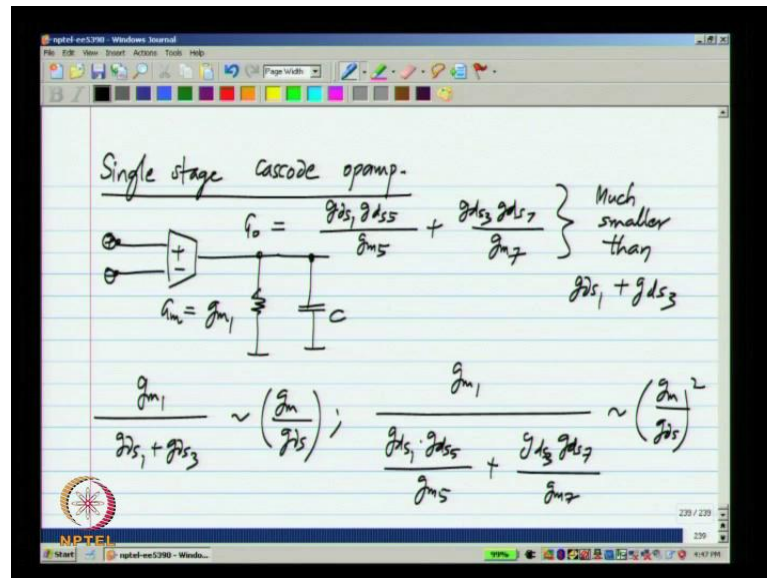 nptel-ee5390 - Windows Journal
File Edit View Insert Actions Tools Help
Page Width
B I
Single stage cascode opamp.
G₀ = gds₁ gds5 / gm5 + gds3 gds7 / gm7 } Much smaller than gds₁ + gds3
+
-
Gm = gm₁
C
gm₁ / (gds₁ + gds3) ~ (gm / gds) ; gm₁ / (gds₁ · gds5 / gm5 + gds3 gds7 / gm7) ~ (gm / gds)²
239 / 239
239
NPTEL
Start nptel-ee5390 - Windo... 99% 4:47 PM